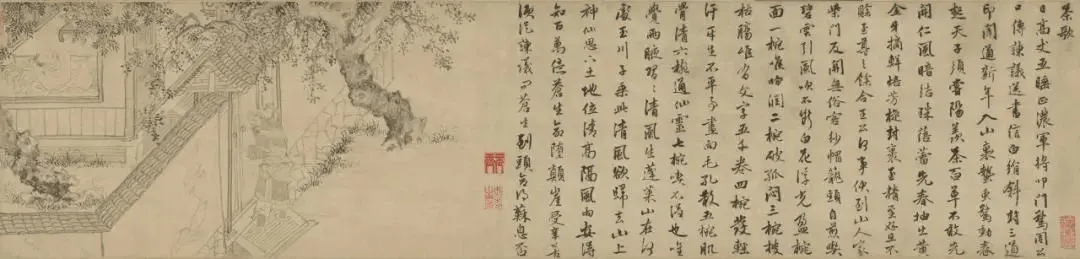 茶歌
日高丈五睡正濃軍將叩門驚周公
口傳諫議送書信白絹斜封三道
印聞道新年入山裏蟄虫驚動春
起天子須嘗陽羨茶百草不敢先
開仁風暗結珠蓓蕾先春抽出黃
金牙摘鮮焙芳旋封裹至精至好且不
賒至尊之餘合王公何事便到山人家
柴門反關無俗客紗帽籠頭自煎喫
碧雲引風吹不斷白花浮光盈椀
面一椀喉吻潤二椀破孤悶三椀搜
枯腸唯有文字五千卷四椀發輕
汗平生不平事盡向毛孔散五椀肌
骨清六椀通仙靈七椀喫不得也唯
覺兩腋習〻清風生蓬萊山在何
處玉川子乘此清風欲歸去山上
神仙土地位清高隔風雨安得
知百萬億蒼生命墮顛崖受辛苦
便從諫議問蒼生到頭合得蘇息否